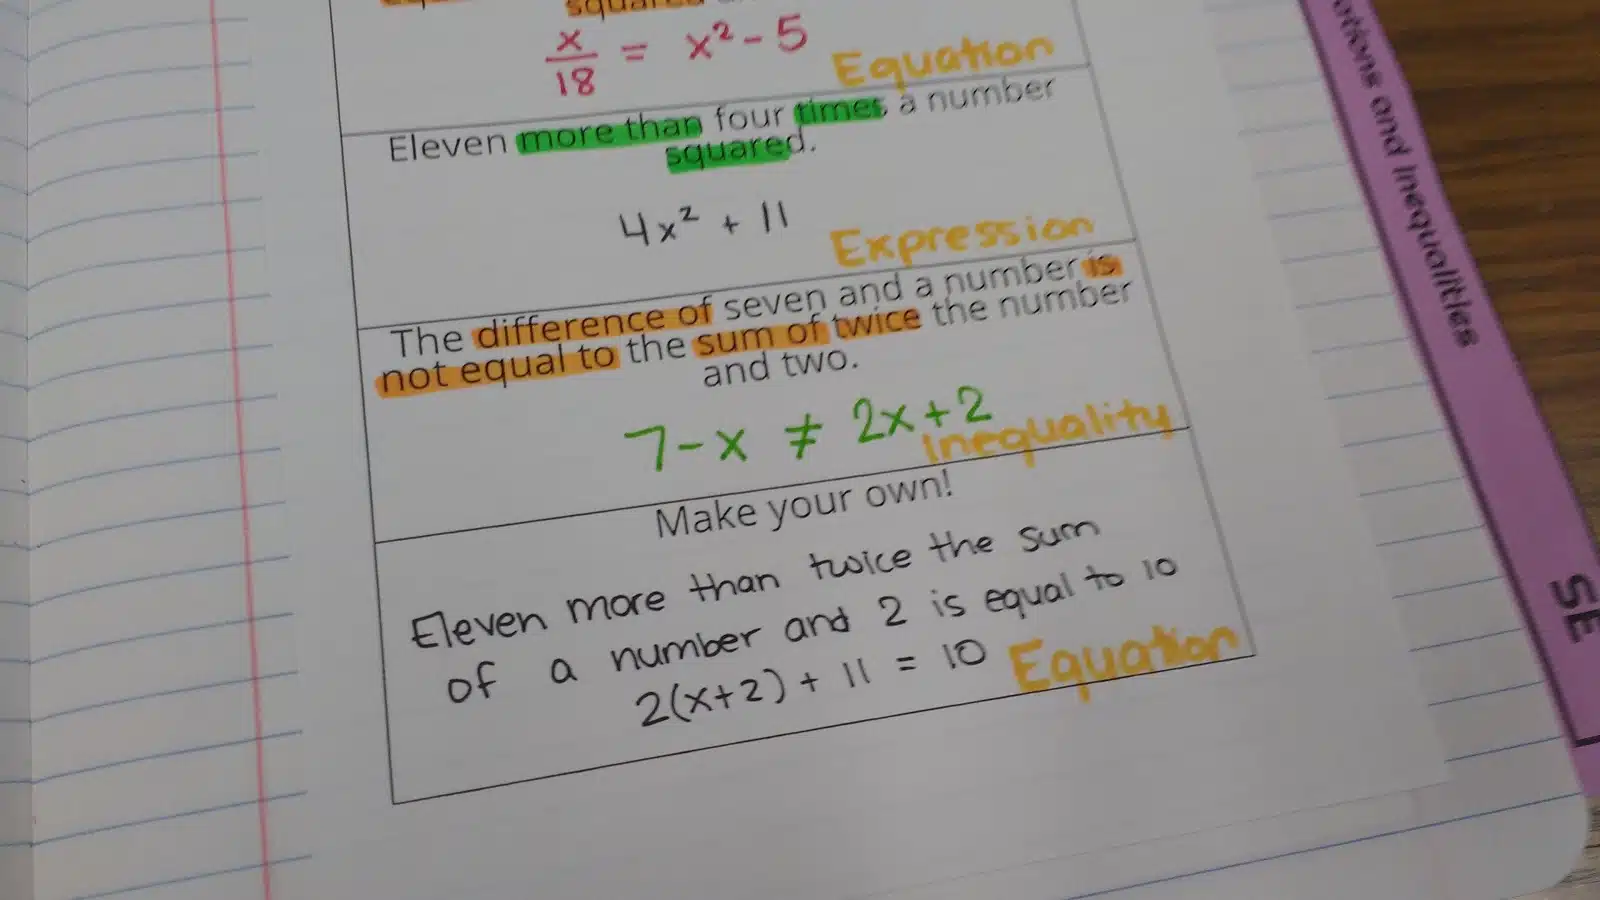 squared
x/18 = x² - 5
Equation
Eleven more than four times a number
squared.
4x² + 11
Expression
The difference of seven and a number is
not equal to the sum of twice the number
and two.
7 - x ≠ 2x + 2
Inequality
Make your own!
Eleven more than twice the sum
of a number and 2 is equal to 10
2(x+2) + 11 = 10
Equation
and Inequalities
SE